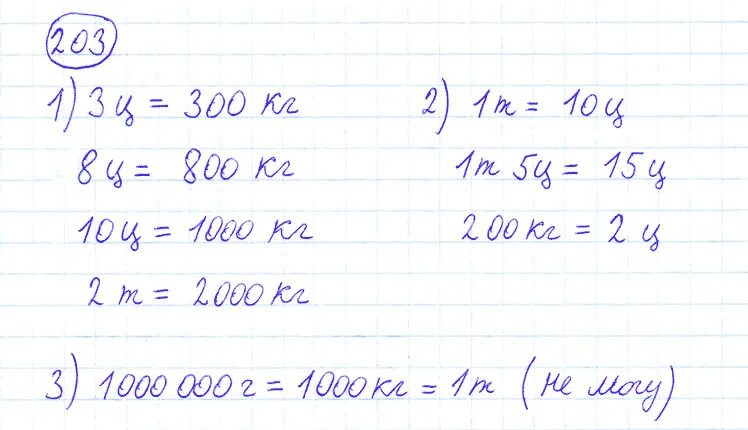 203
1) 3 ц = 300 кг 2) 1 т = 10 ц
8 ц = 800 кг 1 т 5 ц = 15 ц
10 ц = 1000 кг 200 кг = 2 ц
2 т = 2000 кг
3) 1000 000 г = 1000 кг = 1 т (не могу)